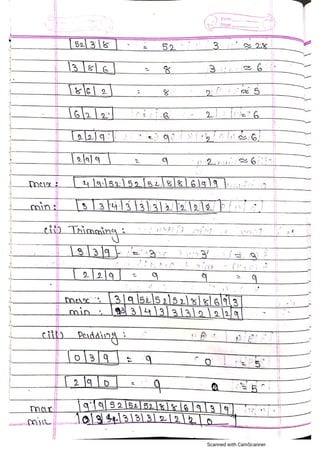 52 3 8 = 52 3 ≈ 28
3 8 6 = 8 3 ≈ 6
8 6 2 = 8 2 ≈ 5
6 2 2 6 2 6
2 2 9 = 9 2 ≈ 6
2 9 9 = 9 2 ≈ 6
max : 4 9 52 52 52 8 8 6 9 9
min : 3 3 4 3 3 3 2 2 2 2
(ii) Thimming :
3 3 9 = 3 3 = 3
2 2 9 = 9 9 = 9
max : 3 9 52 52 52 8 8 6 9 3
min : 3 3 4 3 3 3 2 2 2 9
(iii) Padding :
0 3 9 = 9 0 = 5
2 9 0 = 9 0 = 5
max 9 9 52 52 52 8 8 6 9 3 9
min 0 3 4 3 3 3 2 2 2 0
Scanned with CamScanner